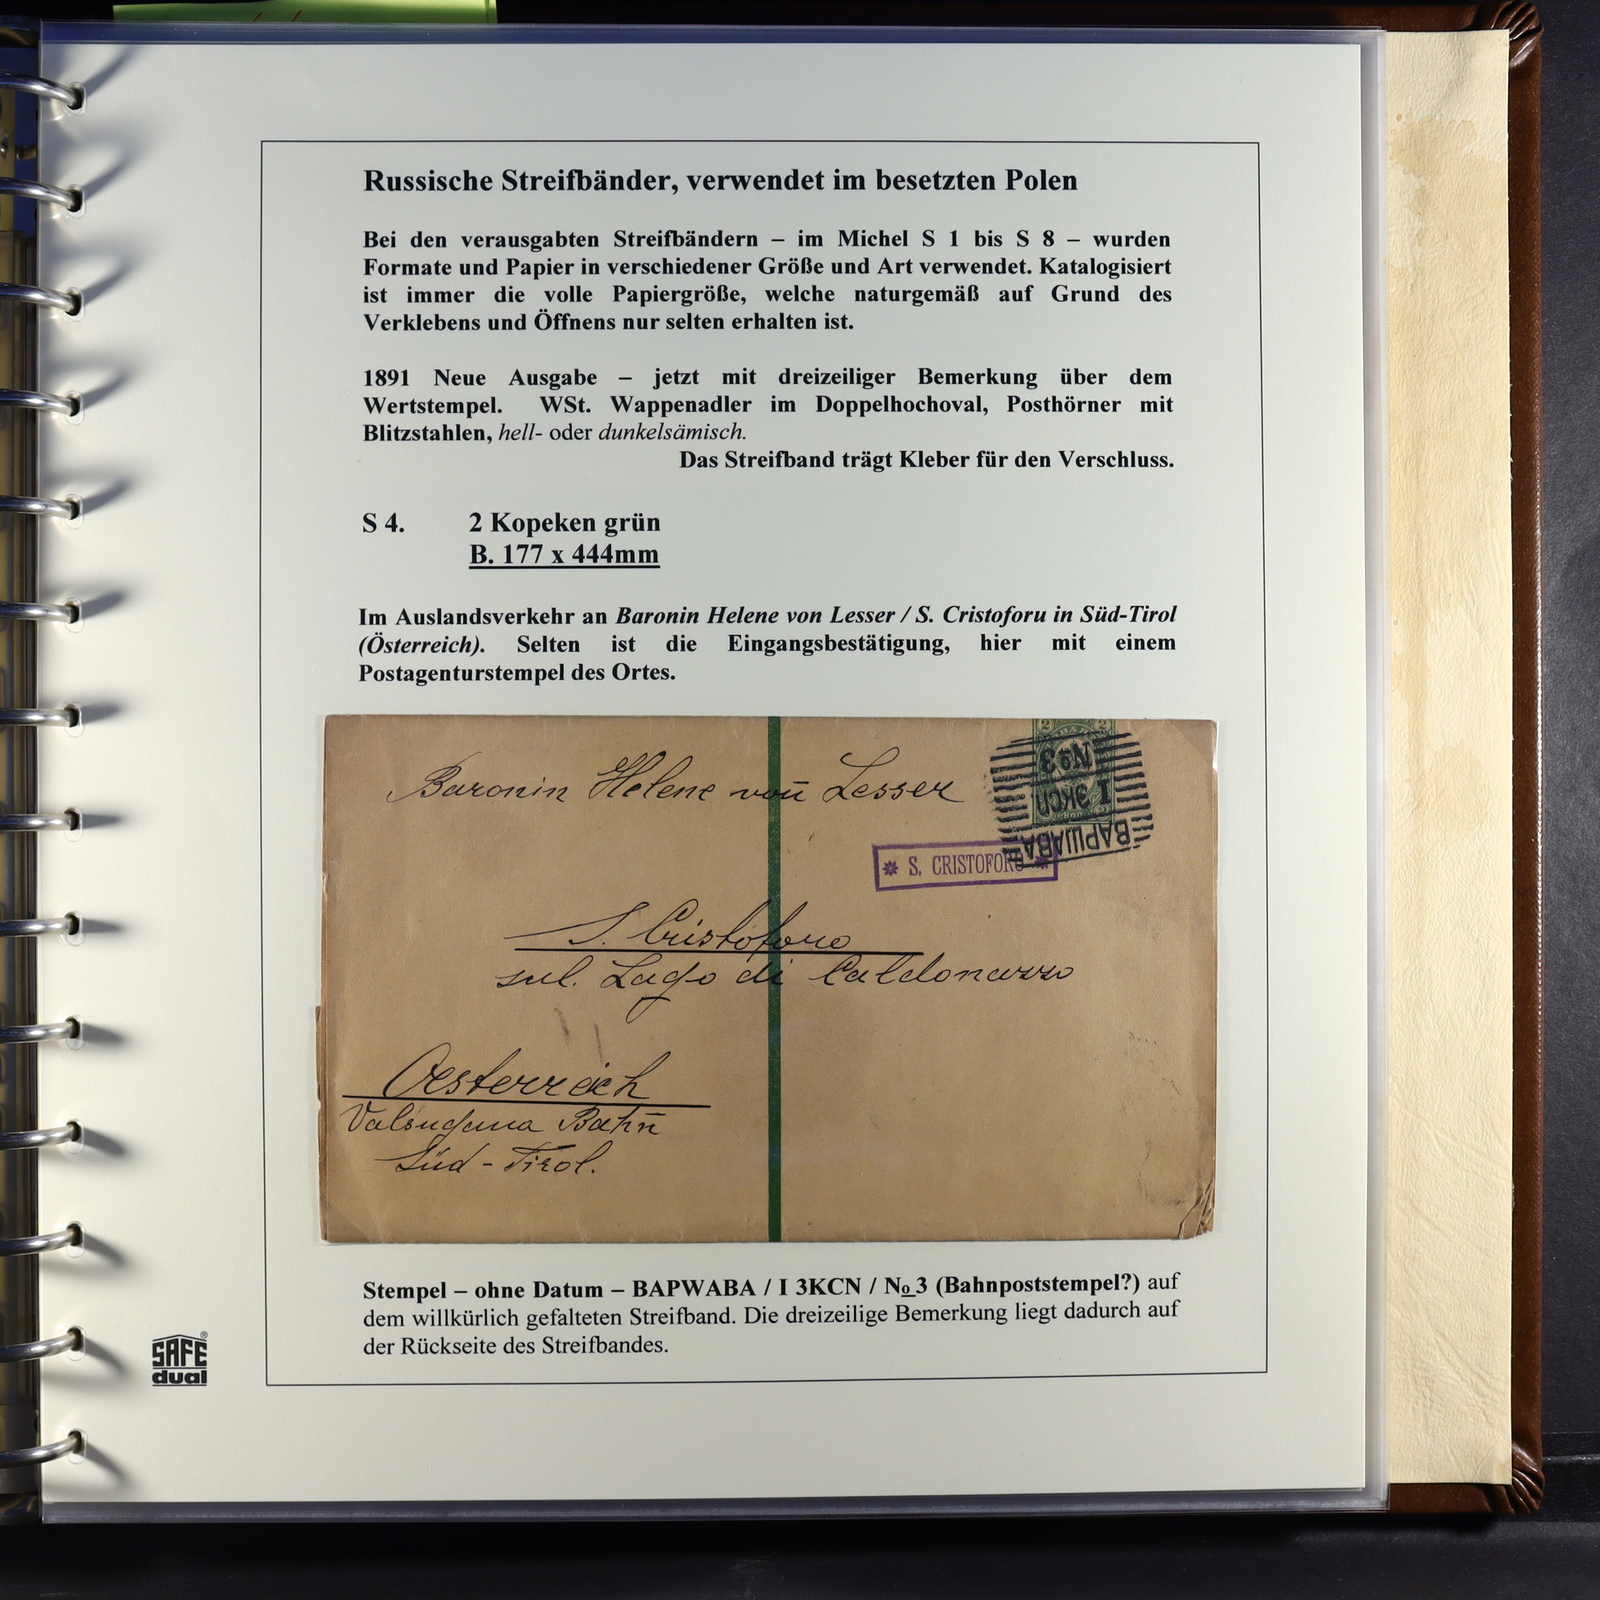 Russische Streifbänder, verwendet im besetzten Polen
Bei den verausgabten Streifbändern – im Michel S 1 bis S 8 – wurden
Formate und Papier in verschiedener Größe und Art verwendet. Katalogisiert
ist immer die volle Papiergröße, welche naturgemäß auf Grund des
Verklebens und Öffnens nur selten erhalten ist.
1891 Neue Ausgabe – jetzt mit dreizeiliger Bemerkung über dem
Wertstempel. WSt. Wappenadler im Doppelhochoval, Posthörner mit
Blitzstahlen, hell- oder dunkelsämisch.
Das Streifband trägt Kleber für den Verschluss.
S 4. 2 Kopeken grün
B. 177 x 444mm
Im Auslandsverkehr an Baronin Helene von Lesser / S. Cristoforu in Süd-Tirol
(Österreich). Selten ist die Eingangsbestätigung, hier mit einem
Postagenturstempel des Ortes.
2 2
Baronin Helene von Lesser
№ 3
I ЭКСП
ВАРШАВА
* S. CRISTOFORO *
S. Cristoforo
sul. Lago di Caldonazzo
Oesterreich
Valsugana Bahn
Süd - Tirol.
Stempel – ohne Datum – BAPWABA / I 3KCN / No 3 (Bahnpoststempel?) auf
dem willkürlich gefalteten Streifband. Die dreizeilige Bemerkung liegt dadurch auf
der Rückseite des Streifbandes.
SAFE®
dual